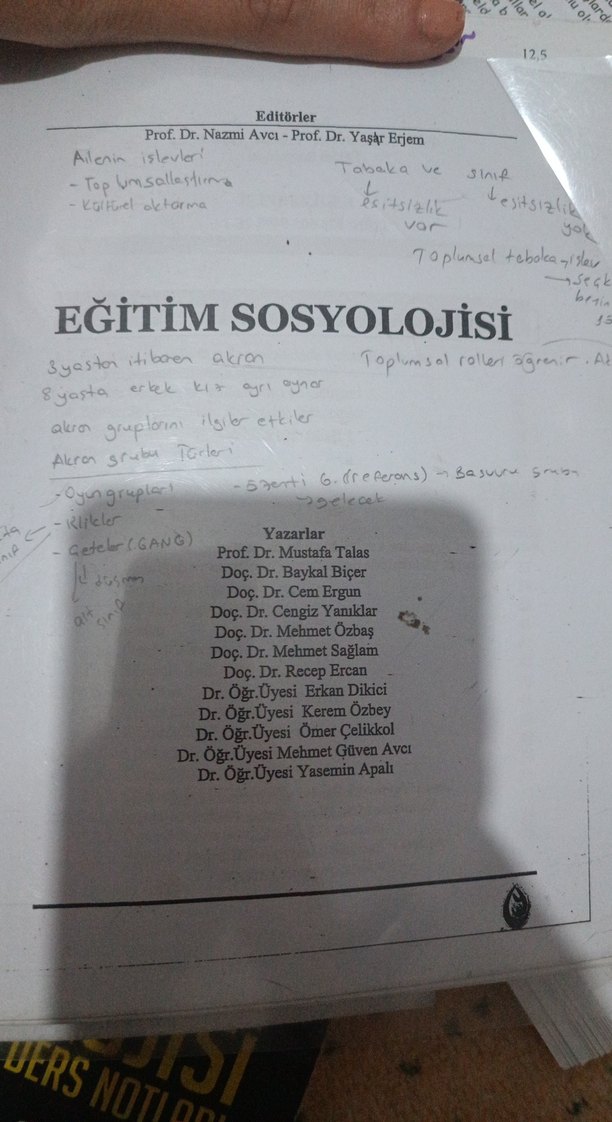 12,5
Editörler
Prof. Dr. Nazmi Avcı - Prof. Dr. Yaşar Erjem
Ailenin işlevleri
- Toplumsallaştırma
- Kültürel aktarma
Tabaka ve sınıf
↓ eşitsizlik var
↓ eşitsizlik yok
Toplumsal tabaka → işlev
EĞİTİM SOSYOLOJİSİ
3 yaştan itibaren akran
Toplumsal rolleri öğrenir.
8 yaşta erkek kız ayrı oynar
akran gruplarını ilgiler etkiler
Akran grubu Türleri
- Oyun grupları
- Özenti G. (referans) → Başvuru grubu
→ gelecek
- Klikler
- Çeteler (GANG)
alt sınıf
Yazarlar
Prof. Dr. Mustafa Talas
Doç. Dr. Baykal Biçer
Doç. Dr. Cem Ergun
Doç. Dr. Cengiz Yanıklar
Doç. Dr. Mehmet Özbaş
Doç. Dr. Mehmet Sağlam
Doç. Dr. Recep Ercan
Dr. Öğr.Üyesi Erkan Dikici
Dr. Öğr.Üyesi Kerem Özbey
Dr. Öğr.Üyesi Ömer Çelikkol
Dr. Öğr.Üyesi Mehmet Güven Avcı
Dr. Öğr.Üyesi Yasemin Apalı
DERS NOTLARI